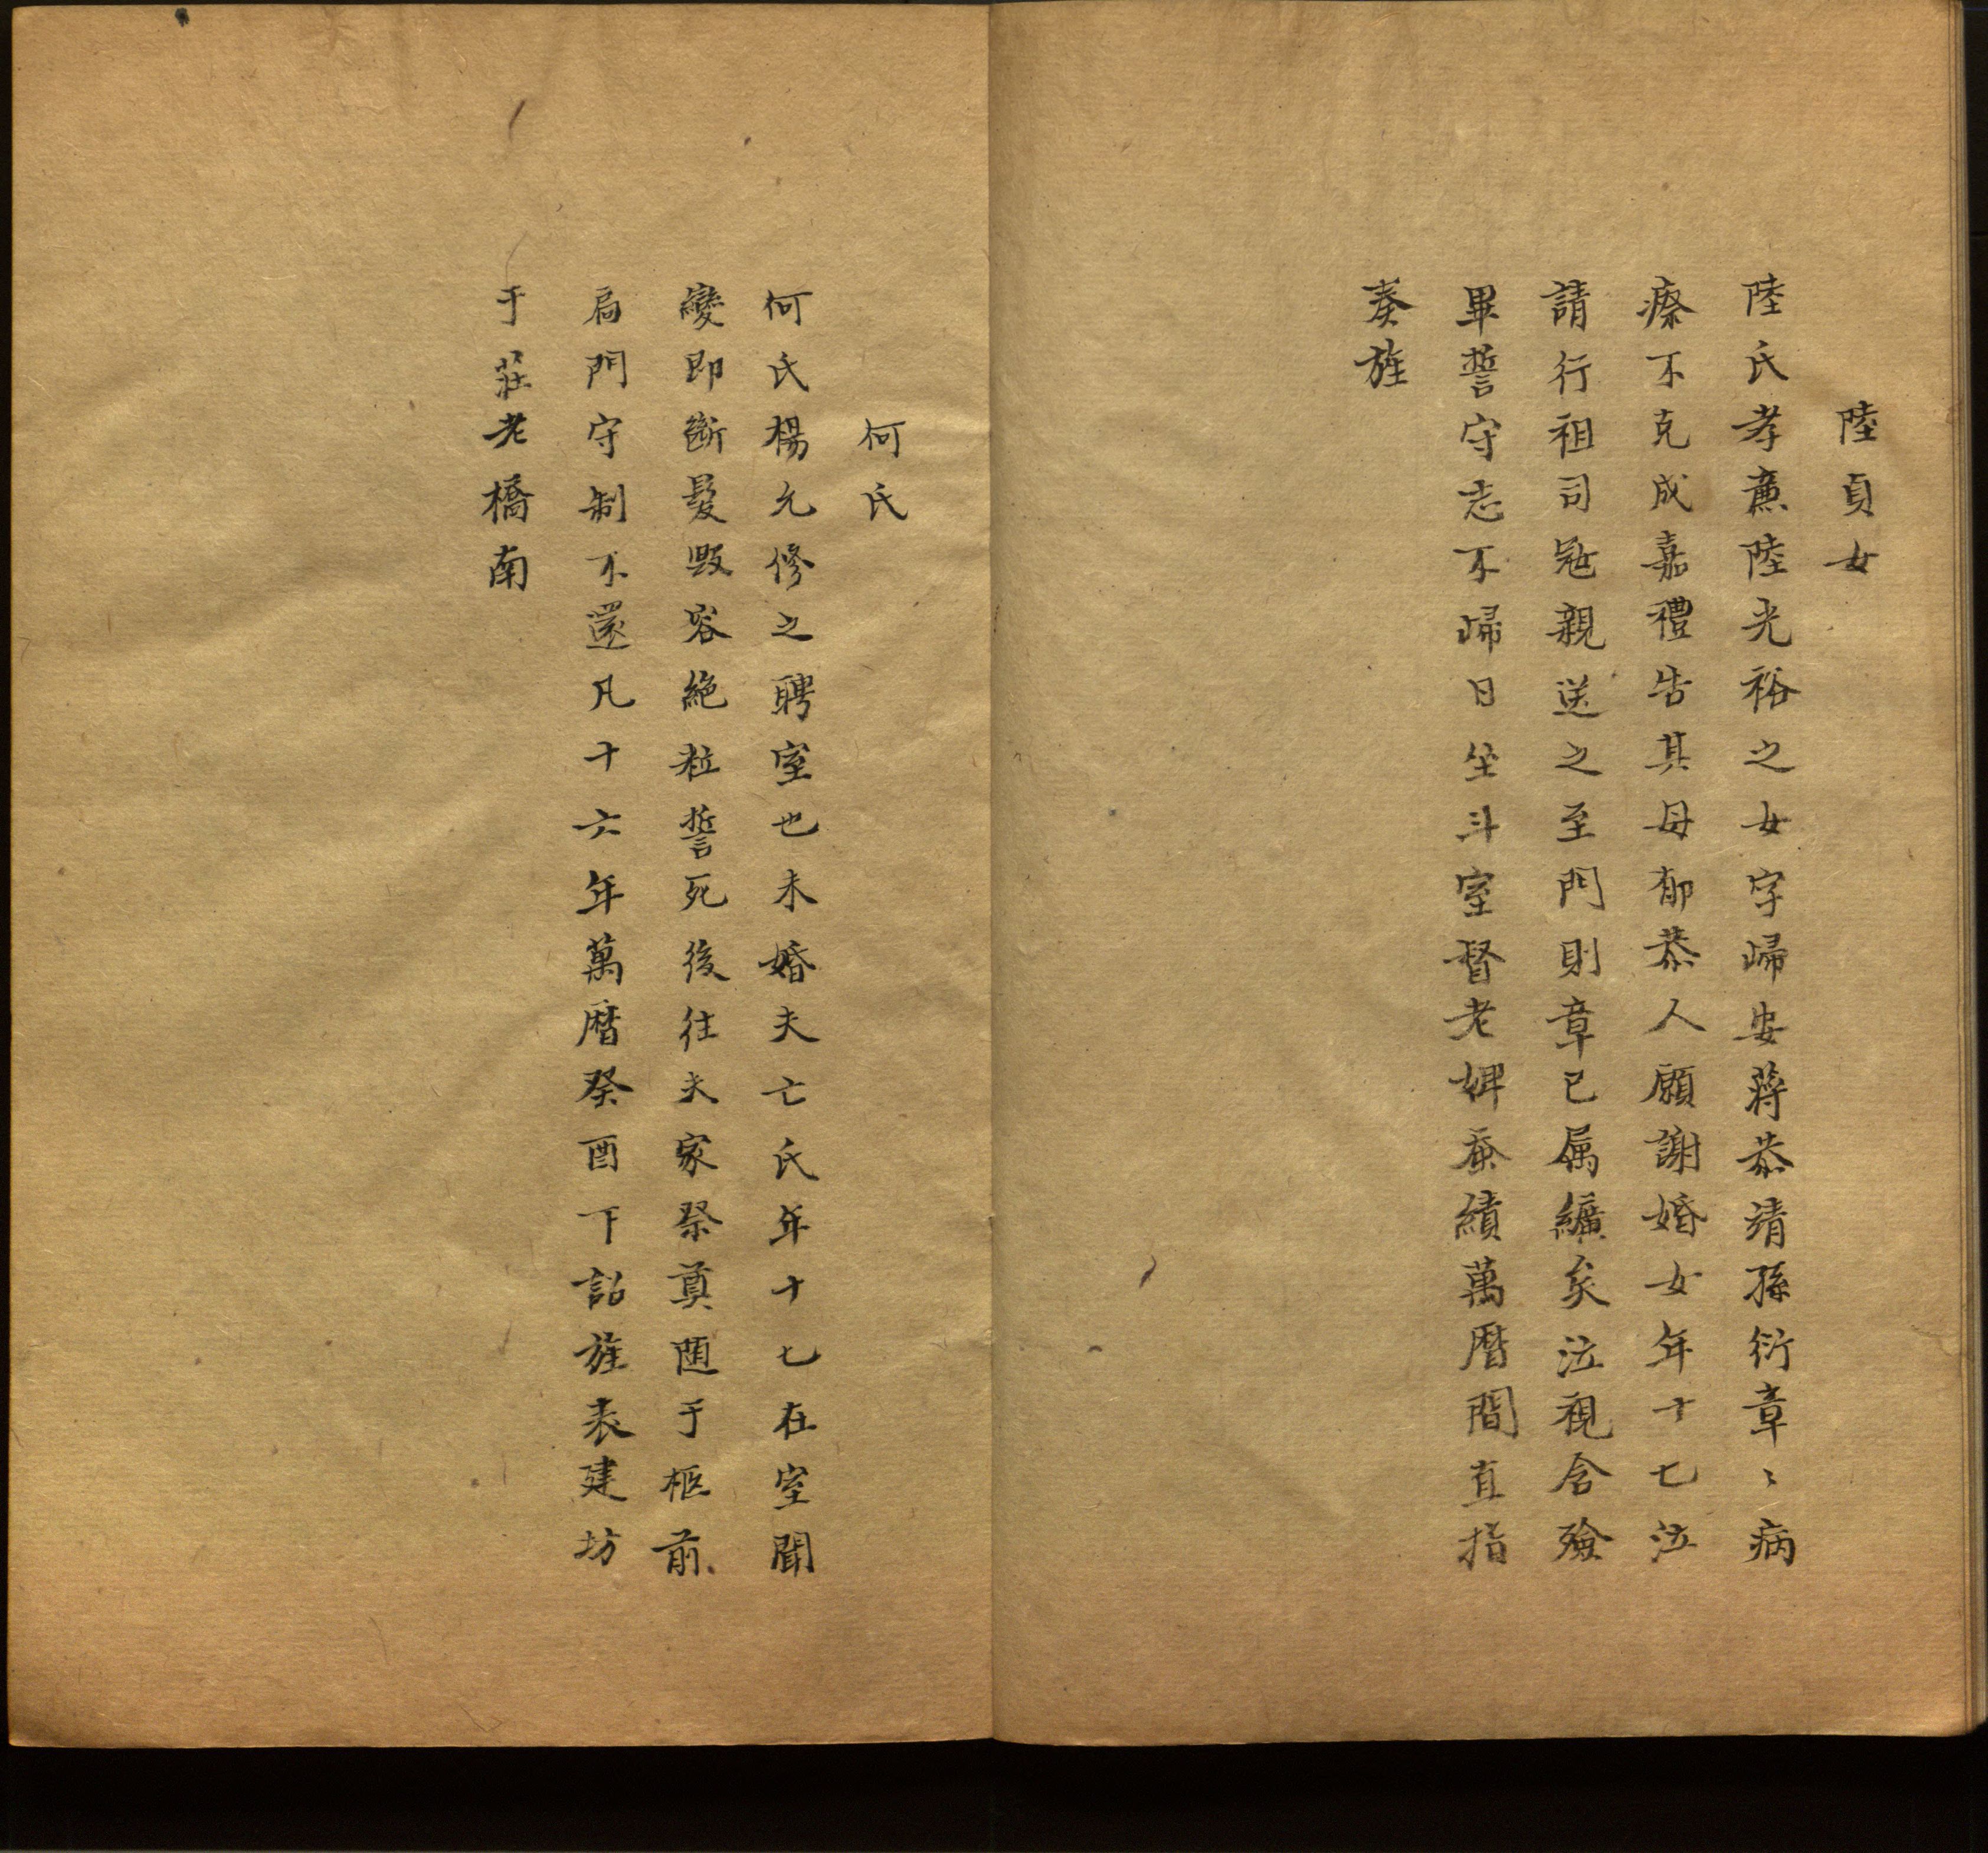 陸貞女
陸氏孝亷陸光裕之女字歸安蔣恭靖孫衍章〻病
瘵不克成嘉禮告其母郁恭人願謝婚女年十七泣
請行祖司冦親送之至門則章已属纊矣泣視含殮
畢誓守志不歸日坐斗室督老婢蚕績萬曆間直指
奏旌
何氏
何氏楊允修之聘室也未婚夫亡氏年十七在室聞
變即斷髮毁容絶粒誓死後往夫家祭奠随于柩前
扃門守制不還凡十六年萬曆癸酉下詔旌表建坊
于莊老橋南